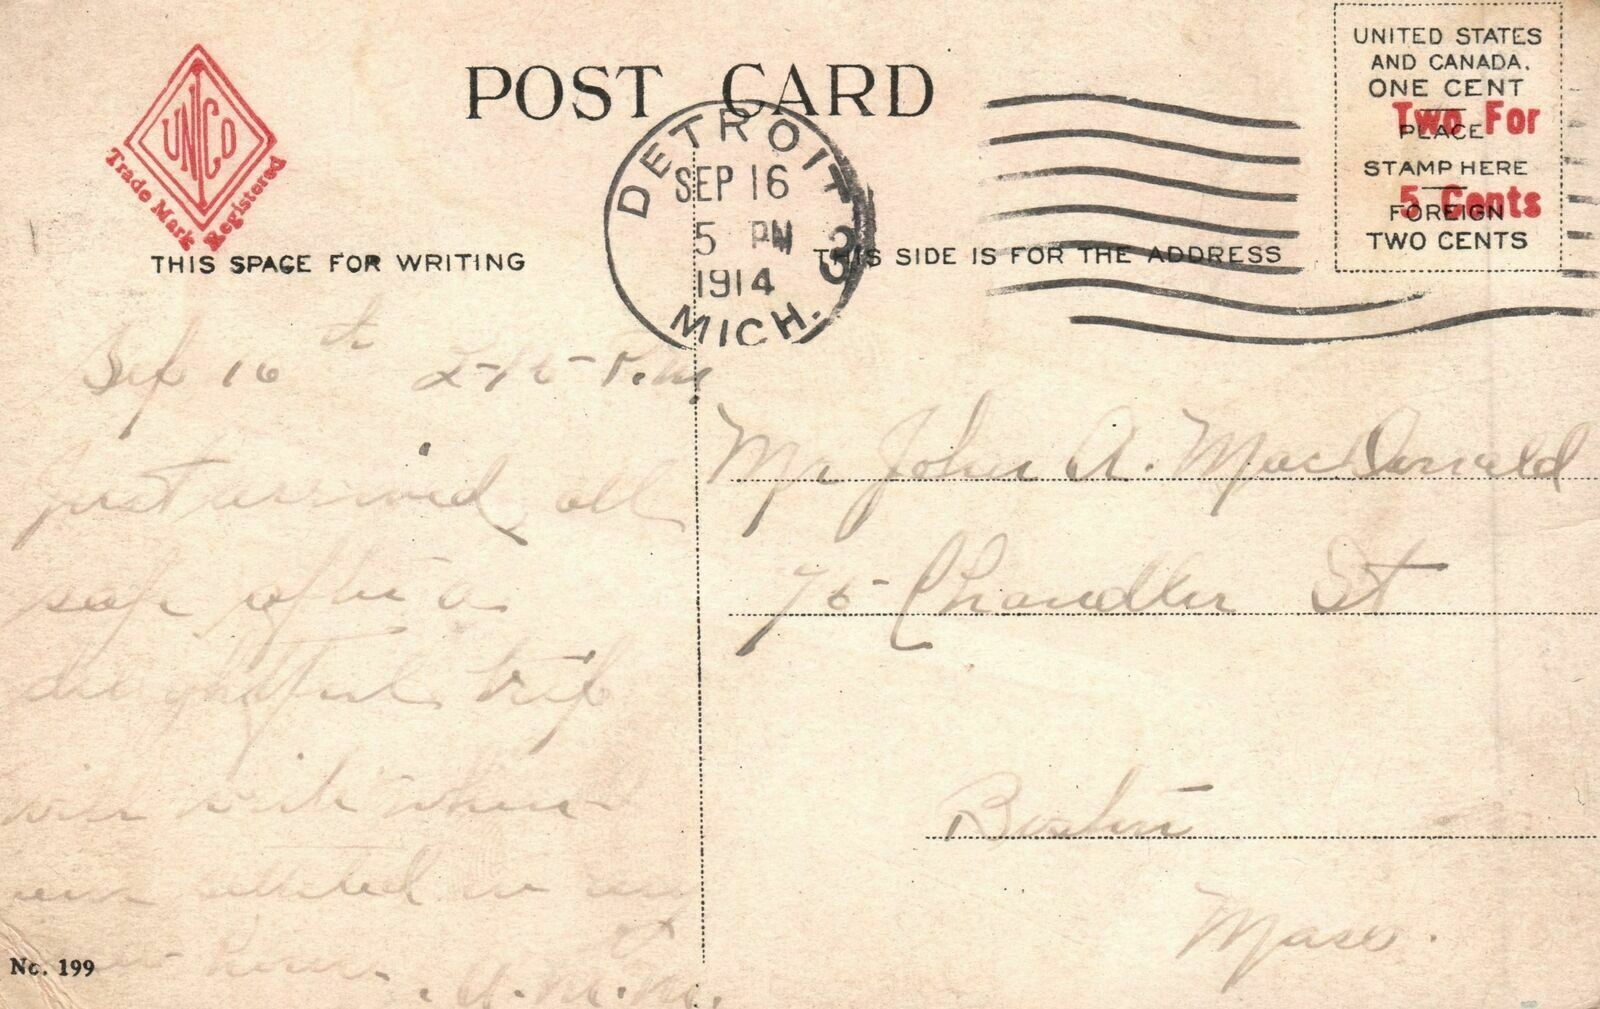 POST CARD
UNICO
Trade Mark Registered
UNITED STATES
AND CANADA.
ONE CENT
Two For
PLACE
STAMP HERE
5 Cents
FOREIGN
TWO CENTS
DETROIT
SEP 16
5 PM
1914
MICH.
3
THIS SPACE FOR WRITING
THIS SIDE IS FOR THE ADDRESS
Sep 16th P.M.
Just arrived all
safe after a
delightful trip
will write when
settled in my
home.
Mr John A. MacDonald
75 Chandler St
Boston
Mass.
No. 199